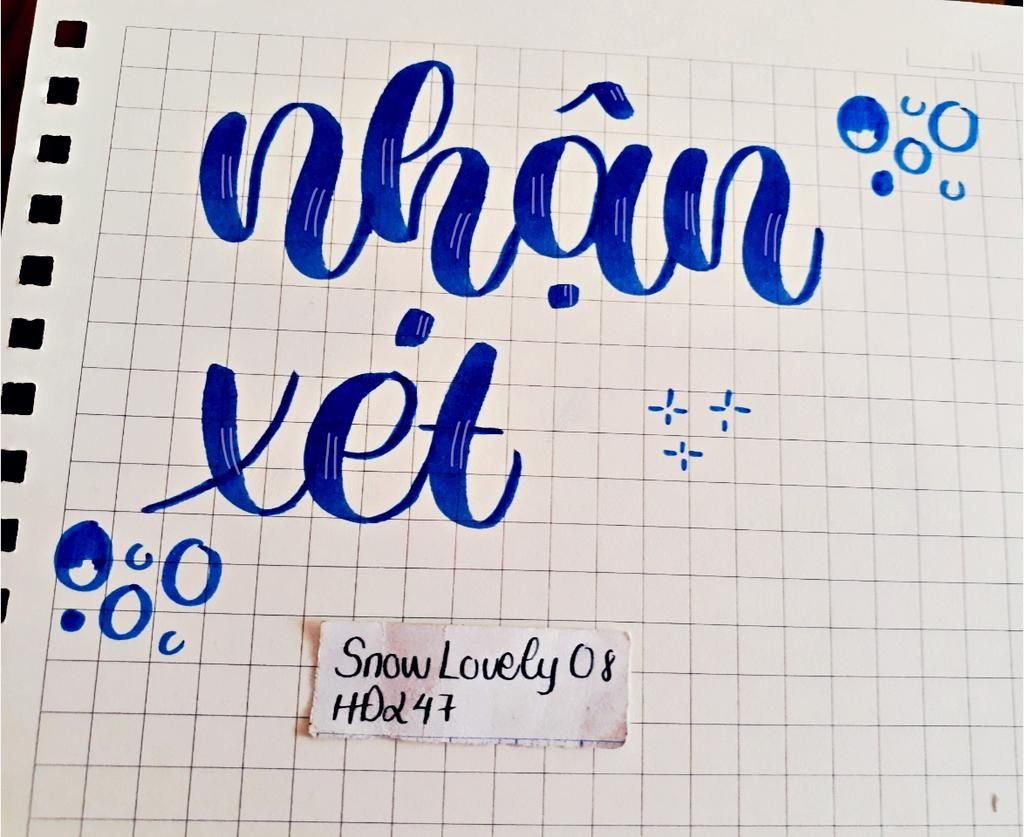 nhận
xét
Snow Lovely 08
HD247